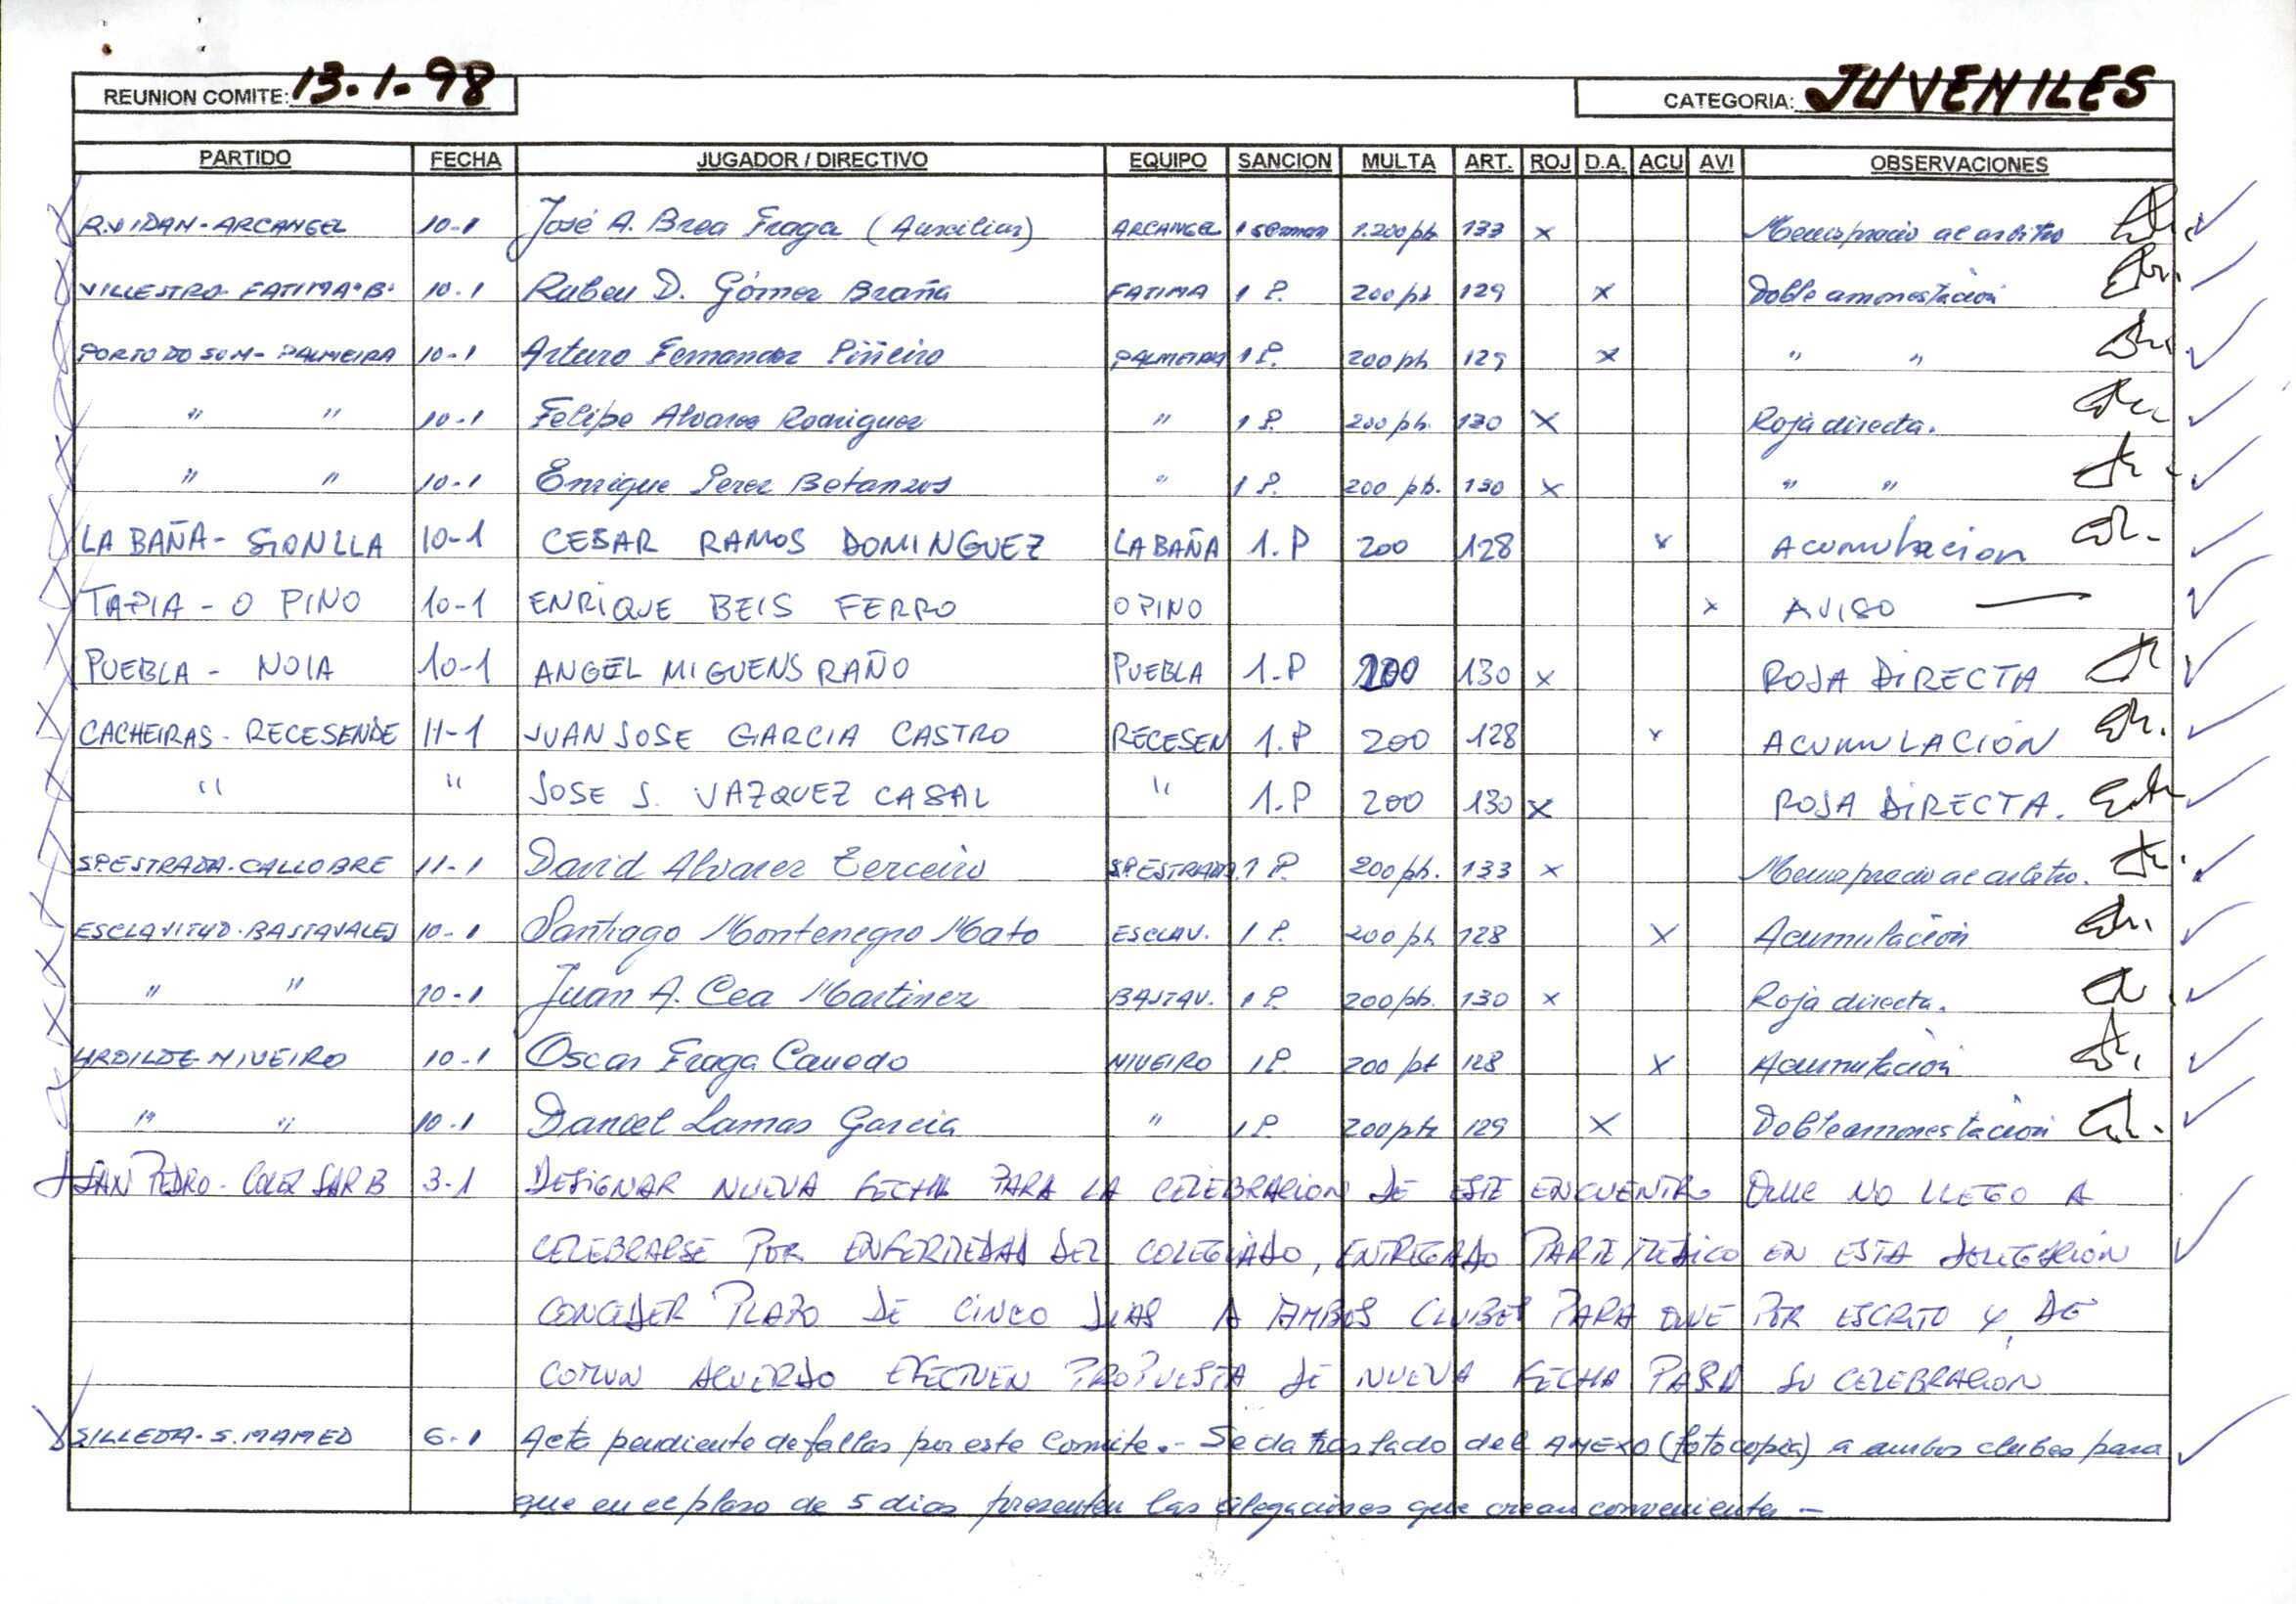 REUNION COMITE: 13.1.98 CATEGORIA: JUVENILES
PARTIDO FECHA JUGADOR / DIRECTIVO EQUIPO SANCION MULTA ART. ROJ D.A. ACU AVI OBSERVACIONES
R.XIDAN - ARCANGEL 10-1 José A. Brea Fraga (Auxiliar) ARCANGEL 1 semana 1.200 pts 133 x Menosprecio al arbitro
VILLESTRO - FATIMA "B" 10-1 Ruben D. Gómez Braña FATIMA 1 P. 200 pts 129 x Doble amonestación
PORTO DO SON - PALMEIRA 10-1 Arturo Fernandez Piñeiro PALMEIRA 1 P. 200 pts 129 x " "
" " 10-1 Felipe Alvarez Rodriguez " 1 P. 200 pts. 130 X Roja directa.
" " 10-1 Enrique Perez Betanzos " 1 P. 200 pts. 130 x " "
LA BAÑA - SIONLLA 10-1 CESAR RAMOS DOMINGUEZ LA BAÑA 1.P 200 128 x Acumulacion
TAPIA - O PINO 10-1 ENRIQUE BEIS FERRO O PINO x AVISO
PUEBLA - NOIA 10-1 ANGEL MIGUENS RAÑO PUEBLA 1.P 200 130 x ROJA DIRECTA
CACHEIRAS - RECESENDE 11-1 JUAN JOSE GARCIA CASTRO RECESEN 1.P 200 128 x ACUMULACIÓN
" " JOSE S. VAZQUEZ CASAL " 1.P 200 130 x ROJA DIRECTA.
SP.ESTRADA - CALLOBRE 11-1 David Alvarez Terceiro SP.ESTRADA 1 P. 200 pts. 133 x Menosprecio al arbitro.
ESCLAVITUD - BASTAVALES 10-1 Santiago Montenegro Mato ESCLAV. 1 P. 200 pts 128 X Acumulación
" " 10-1 Juan A. Cea Martinez BASTAV. 1 P. 200 pts. 130 x Roja directa.
URDILDE NIVEIRO 10-1 Oscar Fraga Canedo NIVEIRO 1 P. 200 pts 128 X Acumulación
" " 10-1 Daniel Lamas Garcia " 1 P. 200 pts 129 X Doble amonestación
SAN PEDRO - COLEX SAR B 3-1 DESIGNAR NUEVA FECHA PARA LA CELEBRACION DE ESTE ENCUENTRO QUE NO LLEGO A
CELEBRARSE POR ENFERMEDAD DEL COLEGIADO, ENTREGADO PARTE MEDICO EN ESTA DELEGACIÓN
CONCEDER PLAZO DE CINCO DIAS A AMBOS CLUBES PARA QUE POR ESCRITO Y DE
COMUN ACUERDO EFECTUEN PROPUESTA DE NUEVA FECHA PARA SU CELEBRACIÓN
SILLEDA - S. MAMED 6-1 Acta pendiente de fallar por este Comite.- Se da traslado del ANEXO (fotocopia) a ambos clubes para
que en el plazo de 5 dias presenten las alegaciones que crean convenientes -